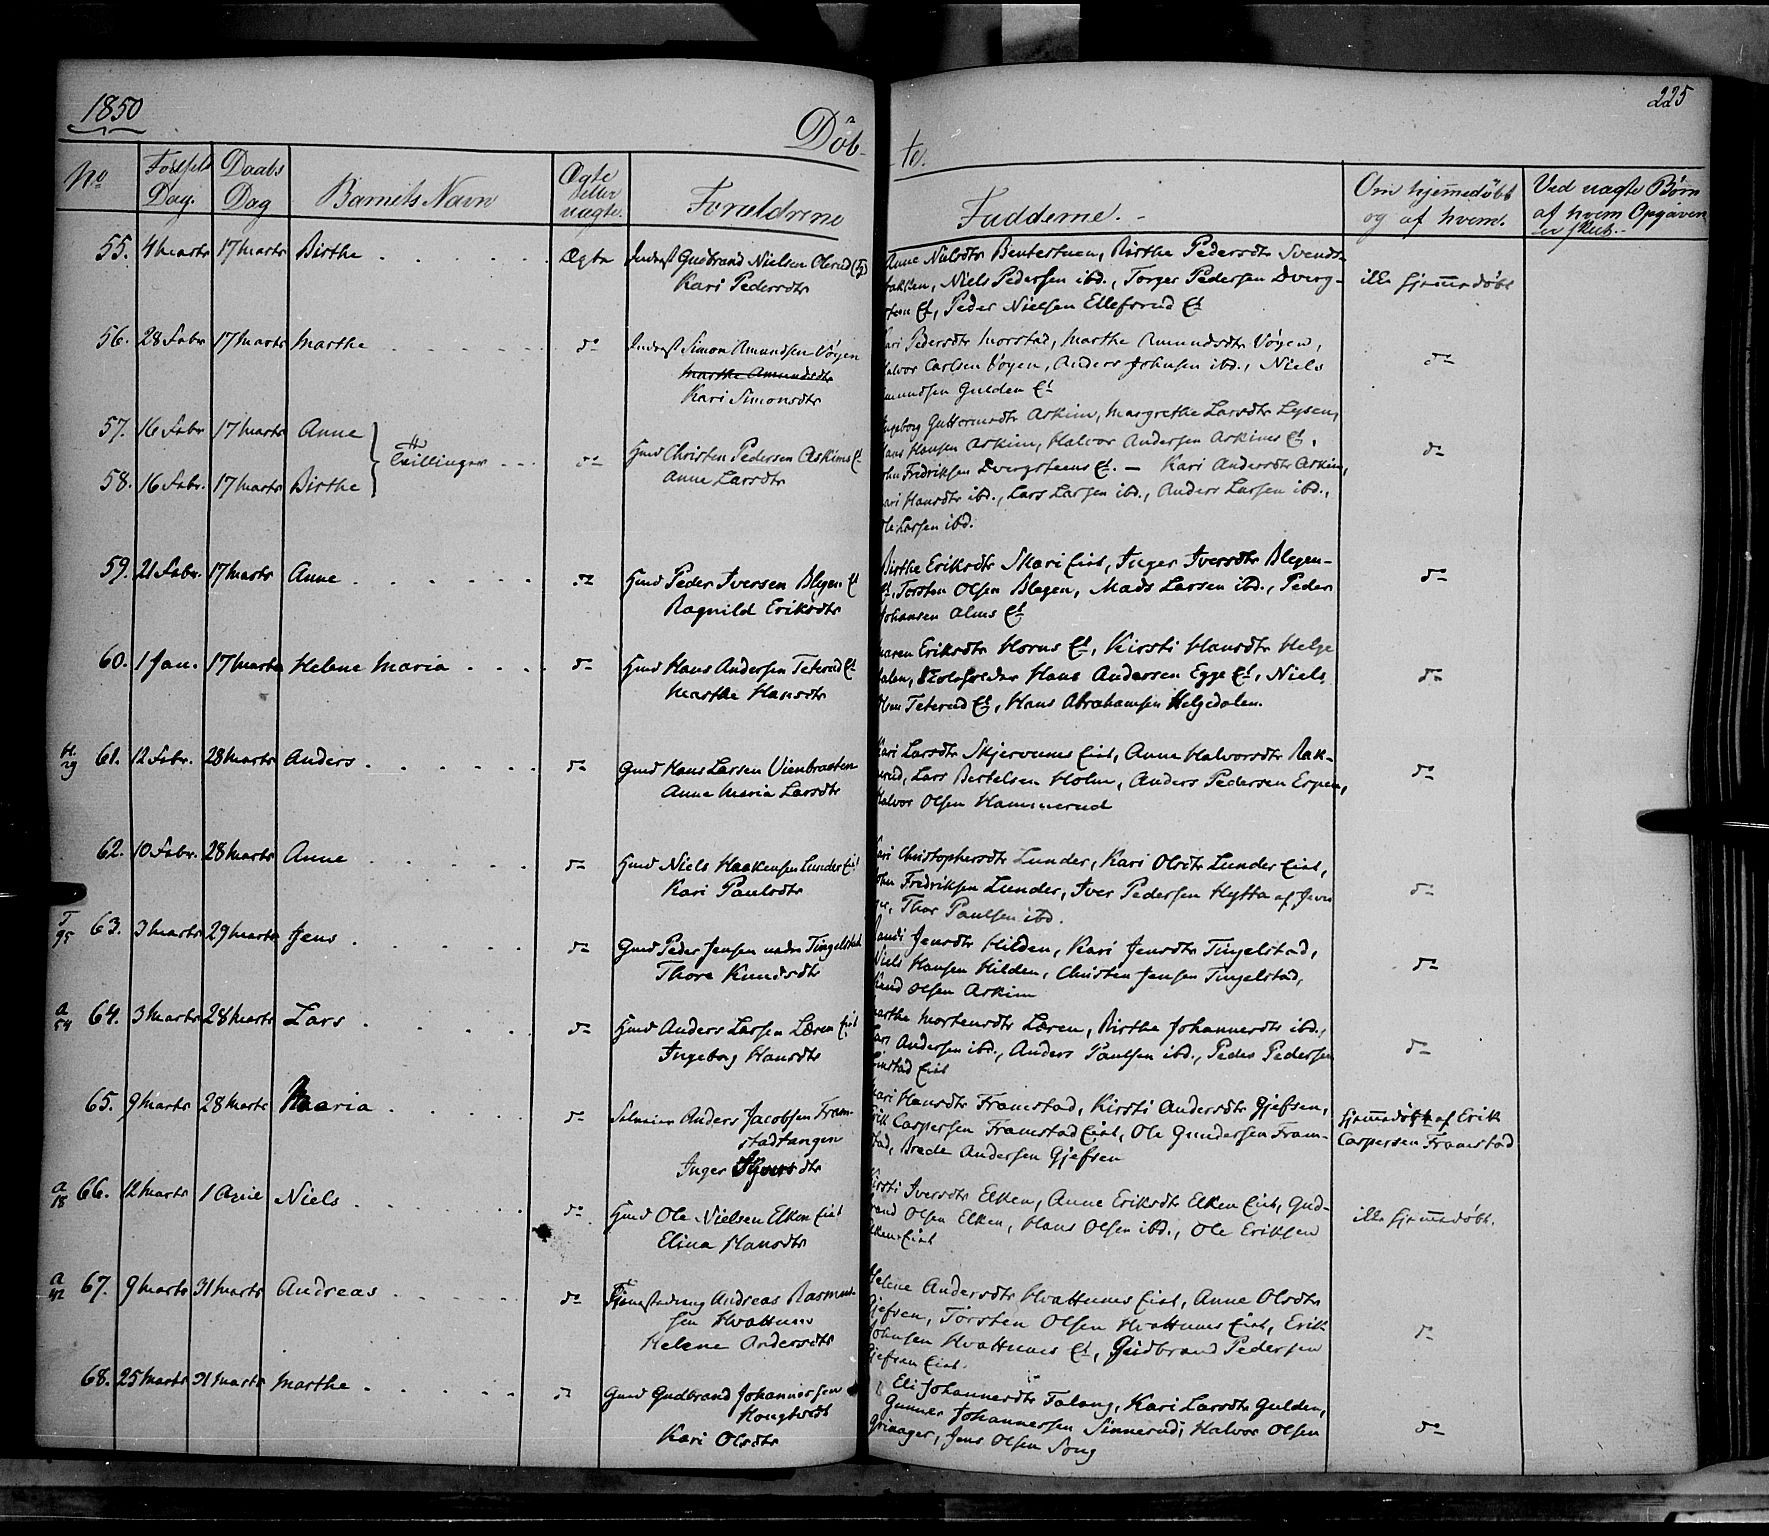 1850
Døb-
te.
225
No
Fødsels Dag.
Daabs Dag
Barnets Navn
Ægte eller uægte.
Forældrene
Fadderne.
Om hjemmedøbt og af hvem.
Ved uægte Børn af hvem Opgaven er skeet.
55. 4 Marts 17 Marts Birthe Ægte Inderst Gudbrand Nielsen Olerud
Kari Pedersdtr
Anne Nielsdtr Bentestuen, Birthe Pedersdtr Svends-
bakken, Niels Pedersen ibd., Torger Pedersen Dverg-
steen Et, Peder Nielsen Ellefsrud Et
ikke hjemmedøbt
56. 28 Febr 17 Marts Marthe do Inderst Simon Amundsen Vøyen
Marthe Amundsdtr
Kari Simonsdtr
Kari Pedersdtr Morstad, Marthe Amundsdtr Vøyen,
Halvor Carlsen Vøyen, Anders Johnsen ibd., Niels
Amundsen Gulden Et
do
57. 16 Febr 17 Marts Anne
Tvillinger
58. 16 Febr. 17 Marts Birthe
do Hmd Christen Pedersen Askims Et
Anne Larsdtr
Ingeborg Guttormsdtr Askim, Margrethe Larsdtr Lysen,
Hans Hansen Askim, Halvor Andersen Askims Et,
John Fredriksen Dvergsteens Et. — Kari Andersdtr Askim,
Kari Hansdtr ibd., Lars Larsen ibd., Anders Larsen ibd.,
Ole Larsen ibd.
do
59. 21 Febr. 17 Marts Anne do Hmd Peder Iversen Blegen Et
Ragnild Eriksdtr
Birthe Eriksdtr Mari Eiet, Inger Iversdtr Blegen-
Et, Torsten Olsen Blegen, Mads Larsen ibd., Peder
Johansen Alms Et
do
60. 1 Jan. 17 Marts Helene Maria do Hmd Hans Andersen Teterud Et
Marthe Hansdtr
Maren Eriksdtr Horns Et, Kirsti Hansdtr Helge
dalen, Skoleholder Hans Andersen Egge Et, Niels
Olsen Teterud Et, Hans Abrahamsen Helgedalen.
do
61. 12 Febr. 28 Marts Anders do Gmd Hans Larsen Vienbraaten
Anne Maria Larsdtr
Kari Larsdtr Skjervums Eiet, Anne Halvorsdtr Rak-
nerud, Lars Bertelsen Holm, Anders Pedersen Erpen,
Halvor Olsen Hammerud
do
62. 10 Febr. 28 Marts Anne do Hmd Niels Haakensen Lunder Eiet
Kari Paulsdtr
Kari Christophersdtr Lunder, Kari Olsdtr Lunder Eiet,
John Fredriksen Lunder, Iver Pedersen Hytta af Jevn
ager, Thor Paulsen ibd.
do
T
95
63. 3 Marts 29 Marts Jens do Gmd Peder Jensen nedre Tingelstad
Thore Knudsdtr
Randi Jensdtr Hilden, Kari Jensdtr Tingelstad,
Niels Hansen Hilden, Christen Jensen Tingelstad,
Knud Olsen Askim
do
a
54
64. 3 Marts 28 Marts Lars do Hmd Anders Larsen Læren Eiet
Ingeborg Hansdtr
Marthe Mortensdtr Læren, Birthe Johannesdtr ibd.,
Lars Andersen ibd., Anders Paulsen ibd., Peder Pedersen
Eiet
do
65. 9 Marts 28 Marts Maria do Selveier Anders Jacobsen Fram-
stadtangen
Inger dtr
Mari Hansdtr Framstad, Kirsti Andersdtr Gjefsen,
Erik Caspersen Framstad Eiet, Ole Gundersen Fram-
stad, Brede Andersen Gjefsen
hjemmedøbt af Erik
Caspersen Framstad
a
18
66. 12 Marts 1 April Niels do Hmd Ole Nielsen Elken Eiet
Elina Hansdtr
Kirsti Iversdtr Elken, Anne Eriksdtr Elken Eiet, Gud-
brand Olsen Elken, Hans Olsen ibd., Ole Eriksen
Elken Eiet
ikke hjemmedøbt.
a
42
67. 9 Marts 31 Marts Andreas do Andreas Rasmus-
sen Hvattum
Helene Andersdtr
Helene Andersdtr Hvattums Eiet, Anne Olsdtr
Gjefsen, Torsten Olsen Hvattums Eiet, Erik
Johnsen Hvattums Et, Gudbrand Pedersen
Gjefsen Eiet.
do
68. 25 Marts 31 Marts Marthe do Gmd Gudbrand Johannessen
Hougtvedt
Kari Olsdtr
Eli Johannesdtr Falang, Kari Larsdtr Gulden,
Gunner Johannessen Sinnerud, Halvor Olsen
Grinager, Jens Olsen Song
do